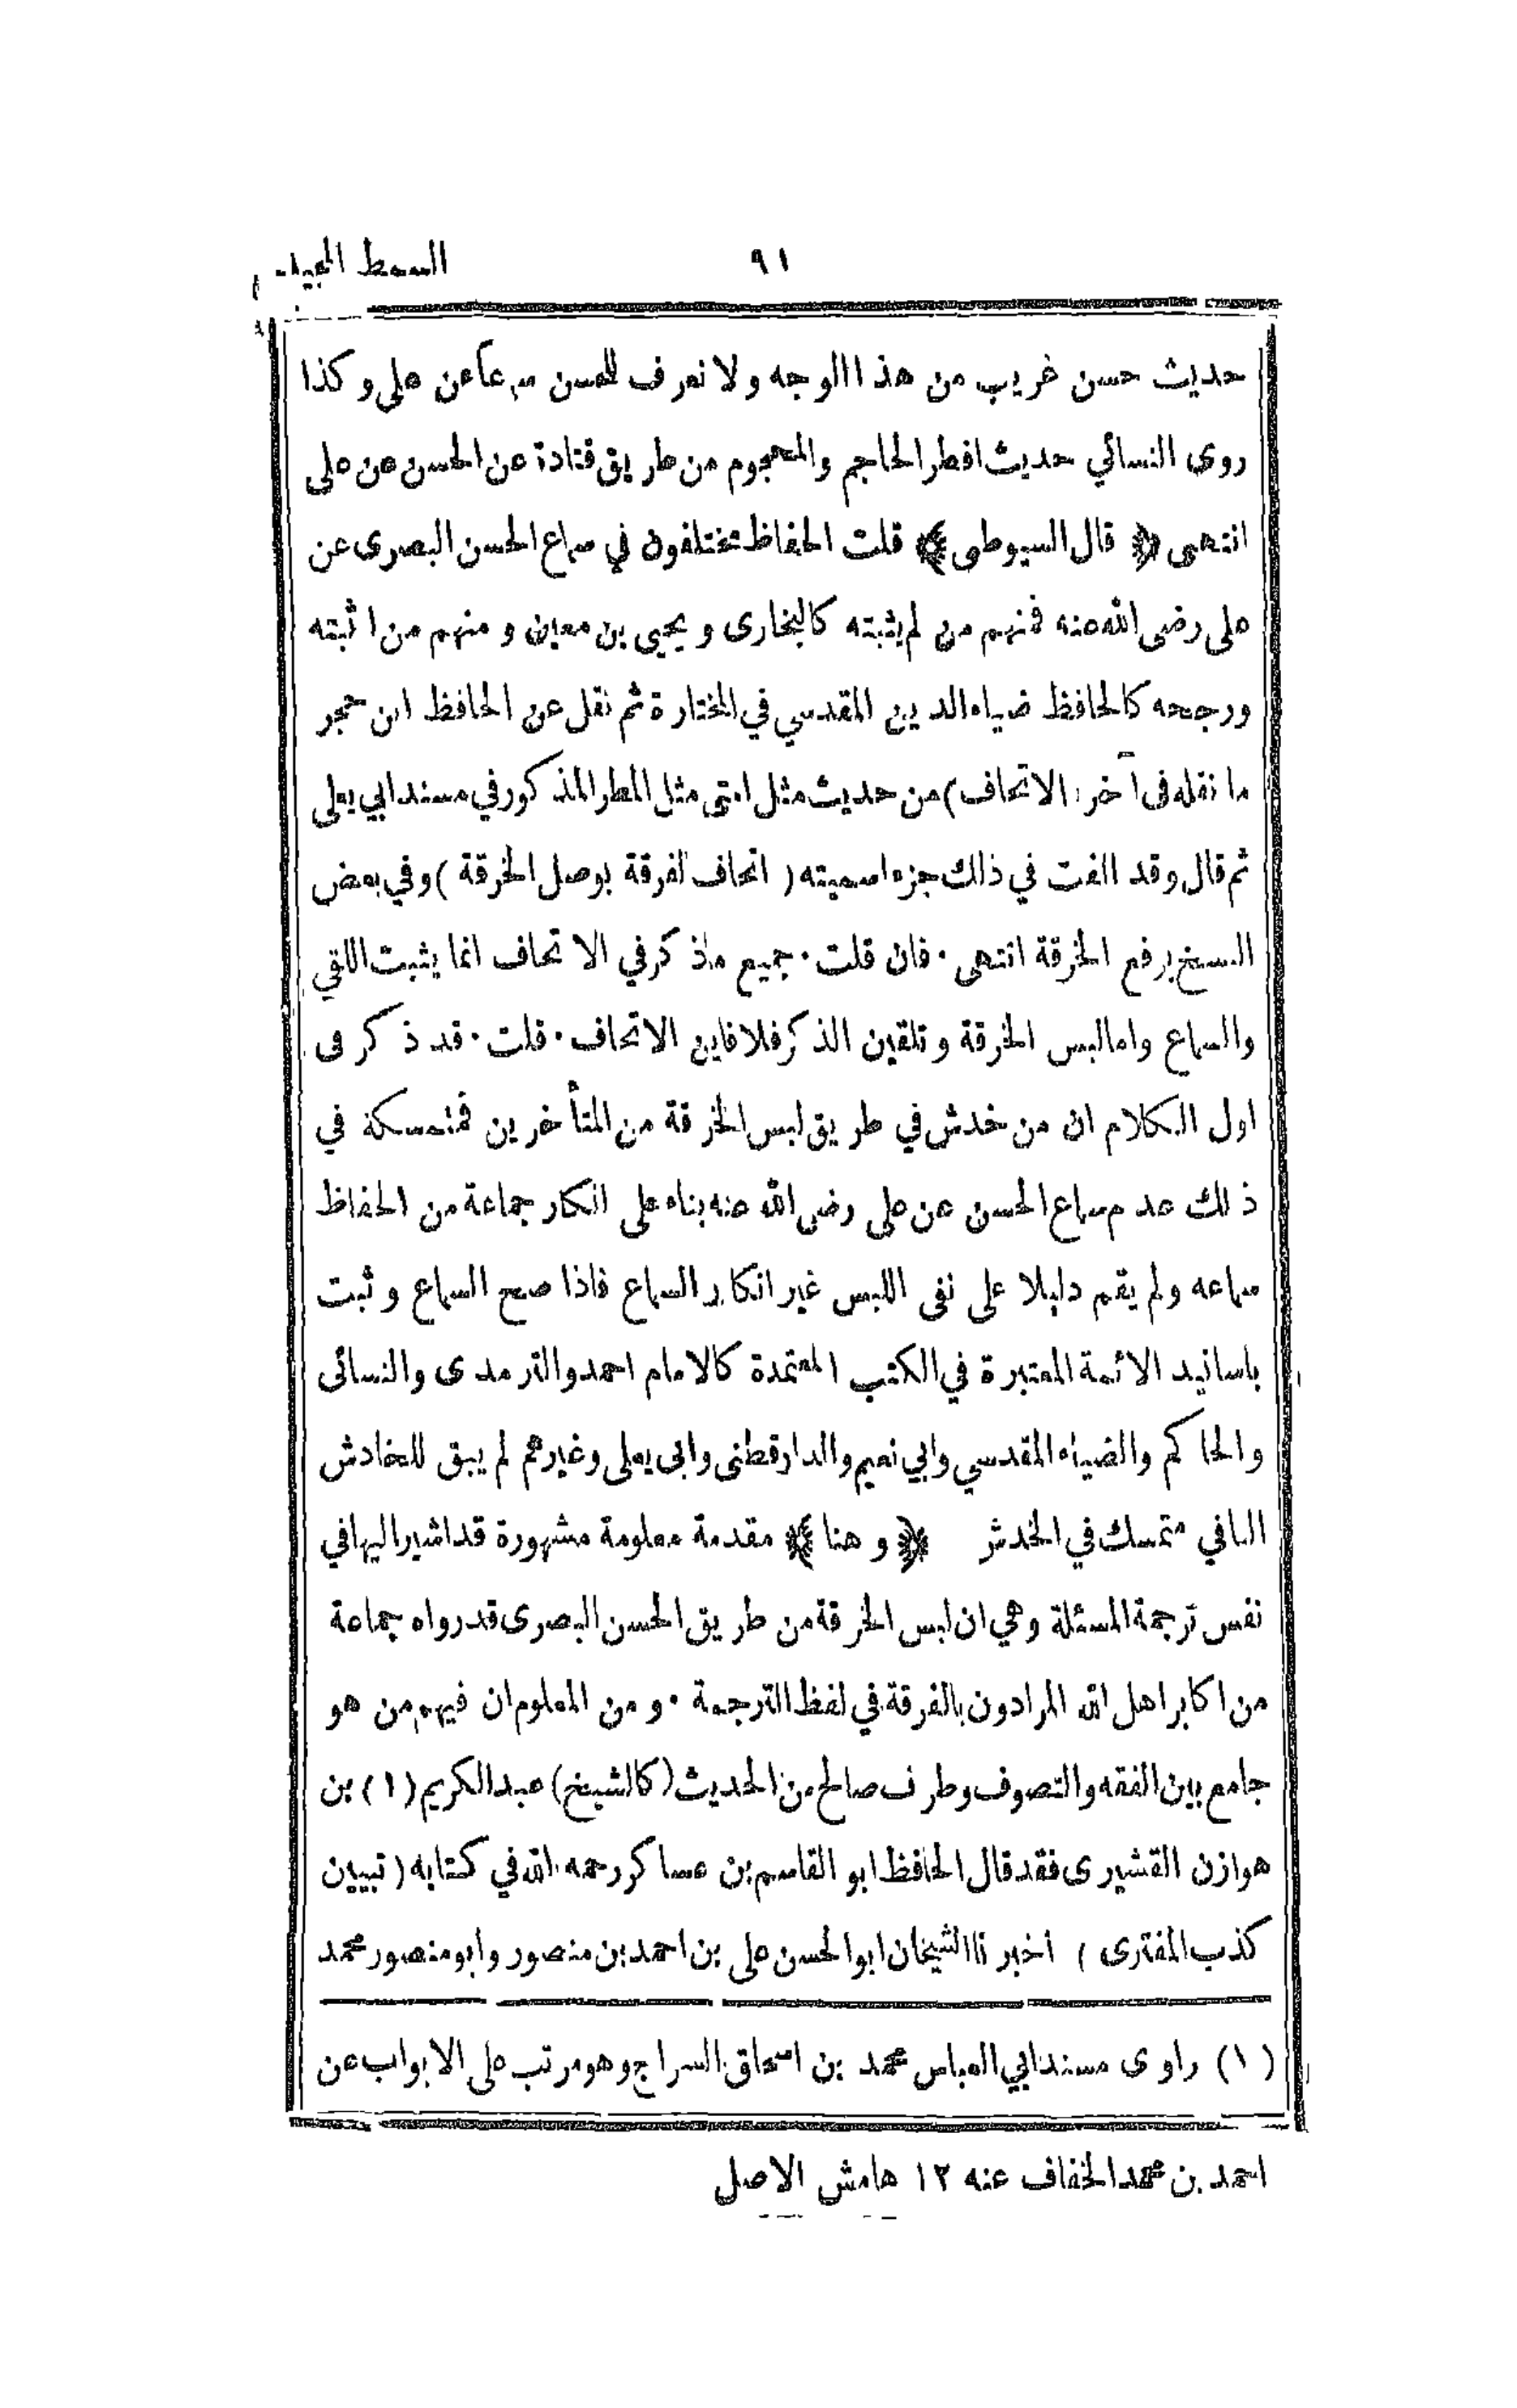 السمط المجيد
٩١
حديث حسن غريب من هذا الوجه ولا نعرف للحسن سماعا عن على وكذا
روى النسائي حديث افطر الحاجم والمحجوم من طريق قتادة عن الحسن عن على
انتهى ﴿ قال السيوطى ﴾ قلت الحفاظ مختلفون في سماع الحسن البصرى عن
على رضى الله عنه فمنهم من لم يثبته كالبخارى و يحيى بن معين و منهم من اثبته
ورجحه كالحافظ ضياء الدين المقدسي في المختارة ثم نقل عن الحافظ ابن حجر
ما نقله فى آخر (الاتحاف) من حديث مثل امتى مثل المطر المذكور في مسند ابي يعلى
ثم قال وقد الفت في ذلك جزء اسميته ( اتحاف الفرقة بوصل الخرقة ) وفي بعض
النسخ برفع الخرقة انتهى · فان قلت · جميع ماذكر في الاتحاف انما يثبت اللقي
والسماع واما لبس الخرقة وتلقين الذكر فلا فاين الاتحاف · قلت · قد ذكر فى
اول الكلام ان من خدش في طريق لبس الخرقة من المتأخرين فمتمسكة في
ذلك عدم سماع الحسن عن على رضى الله عنه بناء على انكار جماعة من الحفاظ
سماعه ولم يقم دليلا على نفى اللبس غير انكار السماع فاذا صح السماع و ثبت
باسانيد الائمة المعتبرة في الكتب المعتمدة كالامام احمد والترمذى والنسائى
والحاكم والضياء المقدسي وابي نعيم والدارقطنى وابى يعلى وغيرهم لم يبق للخادش
النافي متمسك في الخدش ﴿ وهنا ﴾ مقدمة معلومة مشهورة قد اشير اليها في
نفس ترجمة المسئلة وهي ان لبس الخرقة من طريق الحسن البصرى قد رواه جماعة
من اكابر اهل الله المرادون بالفرقة في لفظ الترجمة · و من المعلوم ان فيهم من هو
جامع بين الفقه والتصوف وطرف صالح من الحديث (كالشيخ) عبد الكريم (١) بن
هوازن القشيرى فقد قال الحافظ ابو القاسم بن عساكر رحمه الله في كتابه ( تبيين
كذب المفترى ) اخبرنا الشيخان ابوالحسن على بن احمد بن منصور وابو منصور محمد
(١) راوى مسند ابي العباس محمد بن اسحاق السراج وهو مرتب على الابواب عن
احمد بن محمد الخفاف عنه ١٢ هامش الاصل